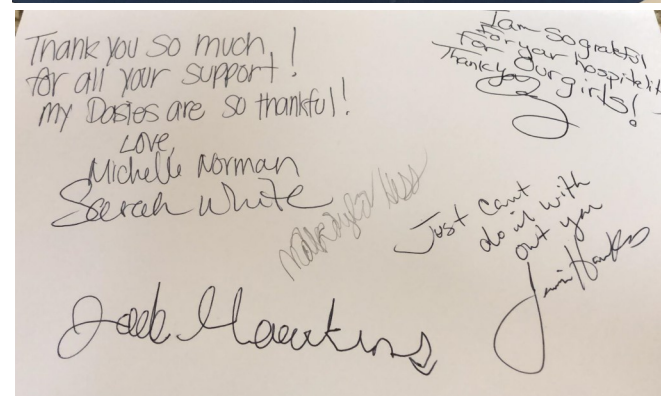 Thank you so much!
for all your support!
my Dasies are so thankful!
Love,
Michelle Norman
Sarah White
I am so grateful
For your hospitelit
Thank you
our girls!
Just cant
do it with
out you
Hawkins